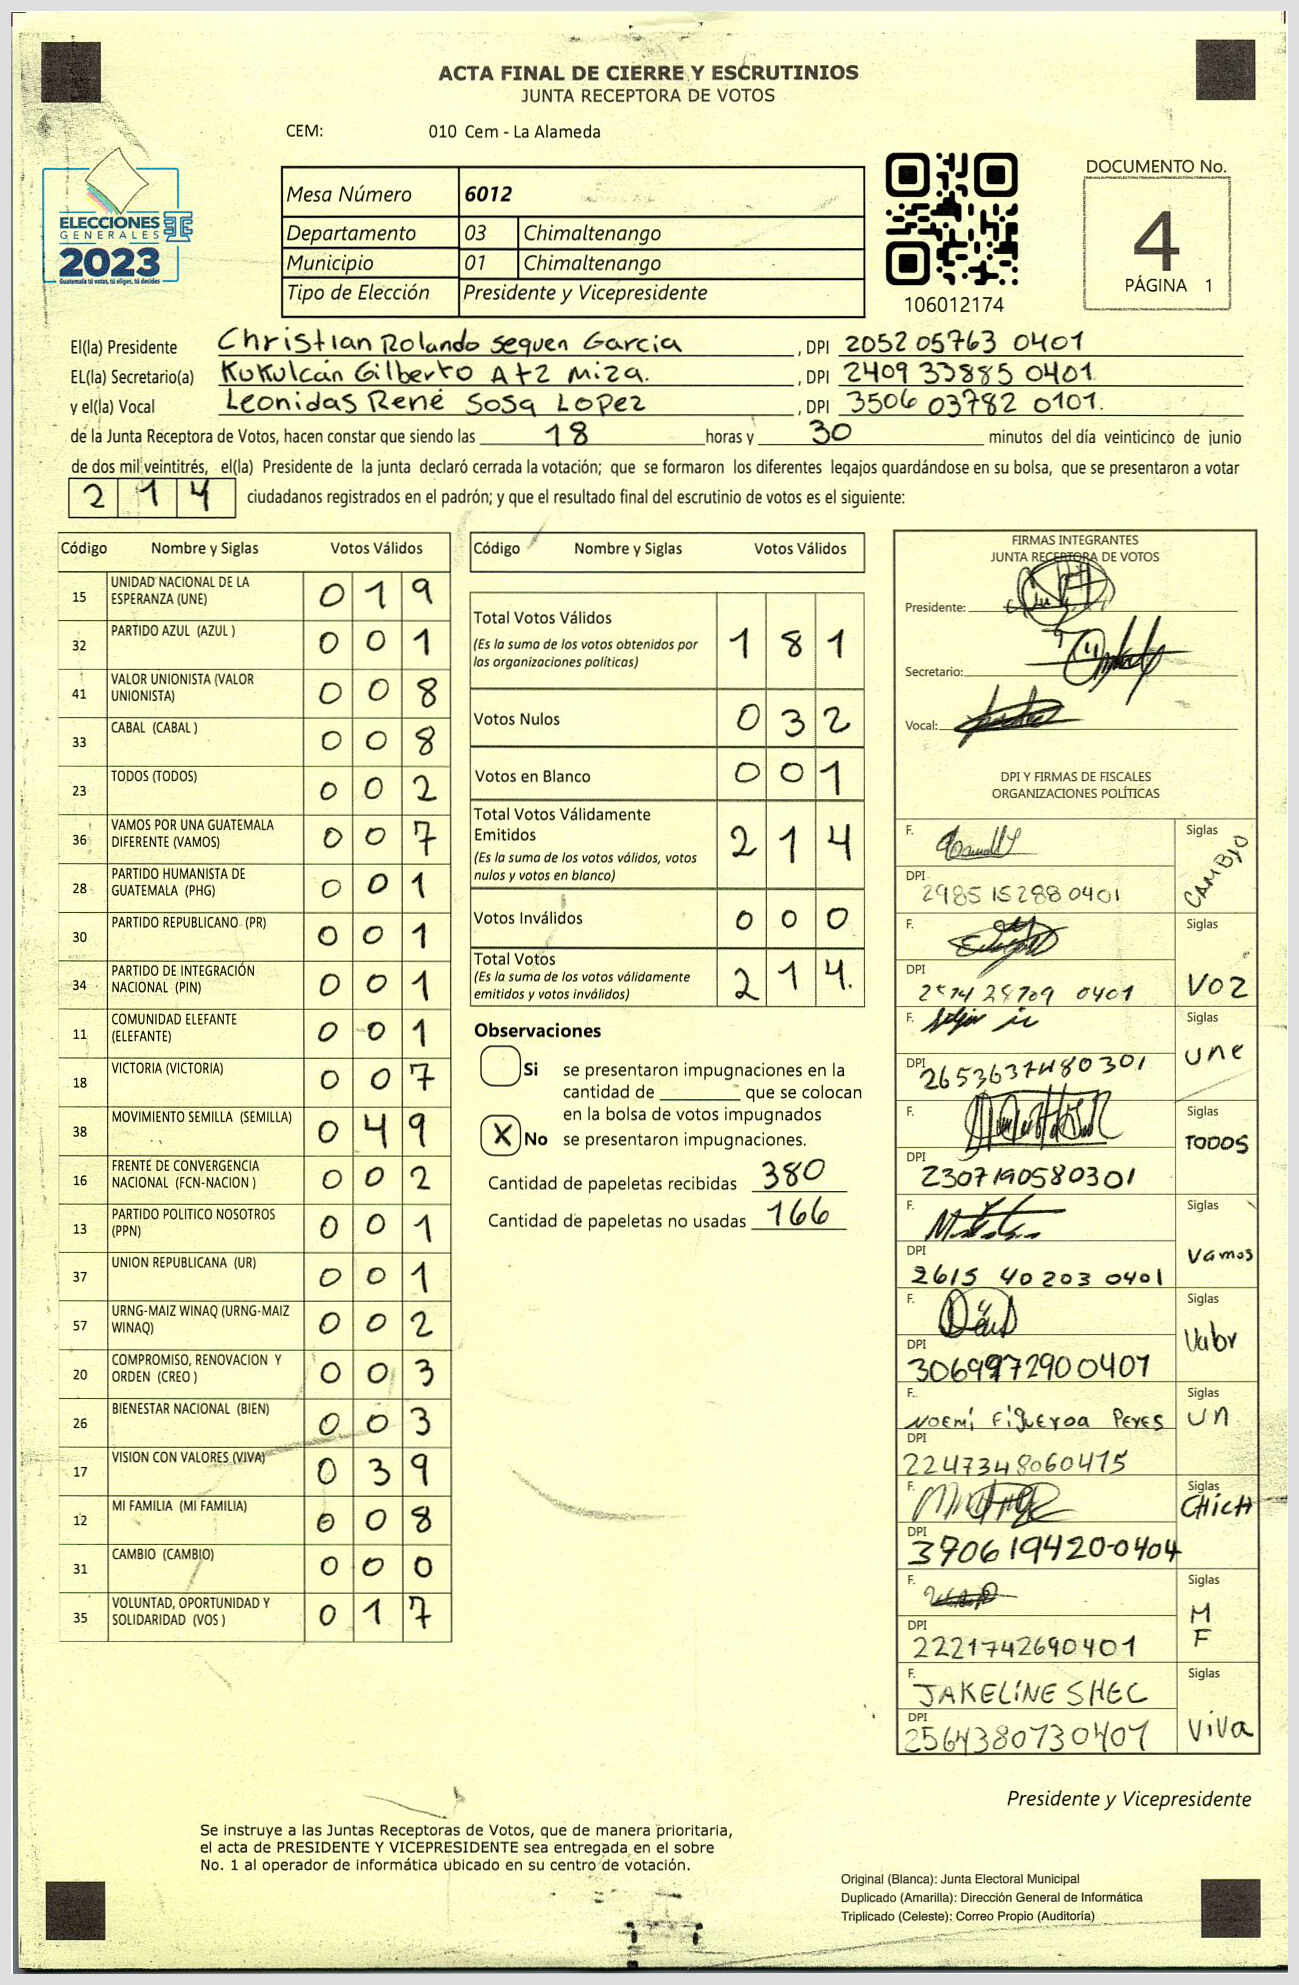 ACTA FINAL DE CIERRE Y ESCRUTINIOS
JUNTA RECEPTORA DE VOTOS
CEM: 010 Cem - La Alameda
ELECCIONES
GENERALES
2023
Guatemala tú votas, tú eliges, tú decides
Mesa Número 6012
Departamento 03 Chimaltenango
Municipio 01 Chimaltenango
Tipo de Elección Presidente y Vicepresidente
106012174
DOCUMENTO No.
4
PÁGINA 1
El(la) Presidente Christian Rolando Sequen Garcia, DPI 2052 05763 0401
EL(la) Secretario(a) Kukulcán Gilberto Atz Miza., DPI 2409 33885 0401
y el(la) Vocal Leonidas René Sosa Lopez, DPI 3506 03782 0101.
de la Junta Receptora de Votos, hacen constar que siendo las 18 horas y 30 minutos del día veinticinco de junio
de dos mil veintitrés, el(la) Presidente de la junta declaró cerrada la votación; que se formaron los diferentes legajos guardándose en su bolsa, que se presentaron a votar
214 ciudadanos registrados en el padrón; y que el resultado final del escrutinio de votos es el siguiente:
Código Nombre y Siglas Votos Válidos
15 UNIDAD NACIONAL DE LA ESPERANZA (UNE) 019
32 PARTIDO AZUL (AZUL ) 001
41 VALOR UNIONISTA (VALOR UNIONISTA) 008
33 CABAL (CABAL ) 008
23 TODOS (TODOS) 002
36 VAMOS POR UNA GUATEMALA DIFERENTE (VAMOS) 007
28 PARTIDO HUMANISTA DE GUATEMALA (PHG) 001
30 PARTIDO REPUBLICANO (PR) 001
34 PARTIDO DE INTEGRACIÓN NACIONAL (PIN) 001
11 COMUNIDAD ELEFANTE (ELEFANTE) 001
18 VICTORIA (VICTORIA) 007
38 MOVIMIENTO SEMILLA (SEMILLA) 049
16 FRENTE DE CONVERGENCIA NACIONAL (FCN-NACION ) 002
13 PARTIDO POLITICO NOSOTROS (PPN) 001
37 UNION REPUBLICANA (UR) 001
57 URNG-MAIZ WINAQ (URNG-MAIZ WINAQ) 002
20 COMPROMISO, RENOVACION Y ORDEN (CREO ) 003
26 BIENESTAR NACIONAL (BIEN) 003
17 VISION CON VALORES (VIVA) 039
12 MI FAMILIA (MI FAMILIA) 008
31 CAMBIO (CAMBIO) 000
35 VOLUNTAD, OPORTUNIDAD Y SOLIDARIDAD (VOS ) 017
Código Nombre y Siglas Votos Válidos
Total Votos Válidos 181
(Es la suma de los votos obtenidos por
las organizaciones políticas)
Votos Nulos 032
Votos en Blanco 001
Total Votos Válidamente
Emitidos 214
(Es la suma de los votos válidos, votos
nulos y votos en blanco)
Votos Inválidos 000
Total Votos 214.
(Es la suma de los votos válidamente
emitidos y votos inválidos)
Observaciones
Si se presentaron impugnaciones en la
cantidad de ________ que se colocan
en la bolsa de votos impugnados
X No se presentaron impugnaciones.
Cantidad de papeletas recibidas 380
Cantidad de papeletas no usadas 166
FIRMAS INTEGRANTES
JUNTA RECEPTORA DE VOTOS
Presidente:
Secretario:
Vocal:
DPI Y FIRMAS DE FISCALES
ORGANIZACIONES POLÍTICAS
F. Siglas CAMBIO
DPI 2985 15288 0401
F. Siglas VOZ
DPI 0401
F. Siglas une
DPI 2653637480301
F. Siglas TODOS
DPI 2307190580301
F. Siglas Vamos
DPI 2615 40203 0401
F. Siglas Valor
DPI 3069972900401
F. NOEMí FiGUEROA PEYES Siglas UN
DPI 2247348060415
F. Siglas CHicH
DPI 370619420-0404
F. Siglas M F
DPI 2221742690401
F. JAKELINE SHEC Siglas ViVa
DPI 2564380730401
Presidente y Vicepresidente
Se instruye a las Juntas Receptoras de Votos, que de manera prioritaria,
el acta de PRESIDENTE Y VICEPRESIDENTE sea entregada en el sobre
No. 1 al operador de informática ubicado en su centro de votación.
Original (Blanca): Junta Electoral Municipal
Duplicado (Amarilla): Dirección General de Informática
Triplicado (Celeste): Correo Propio (Auditoría)